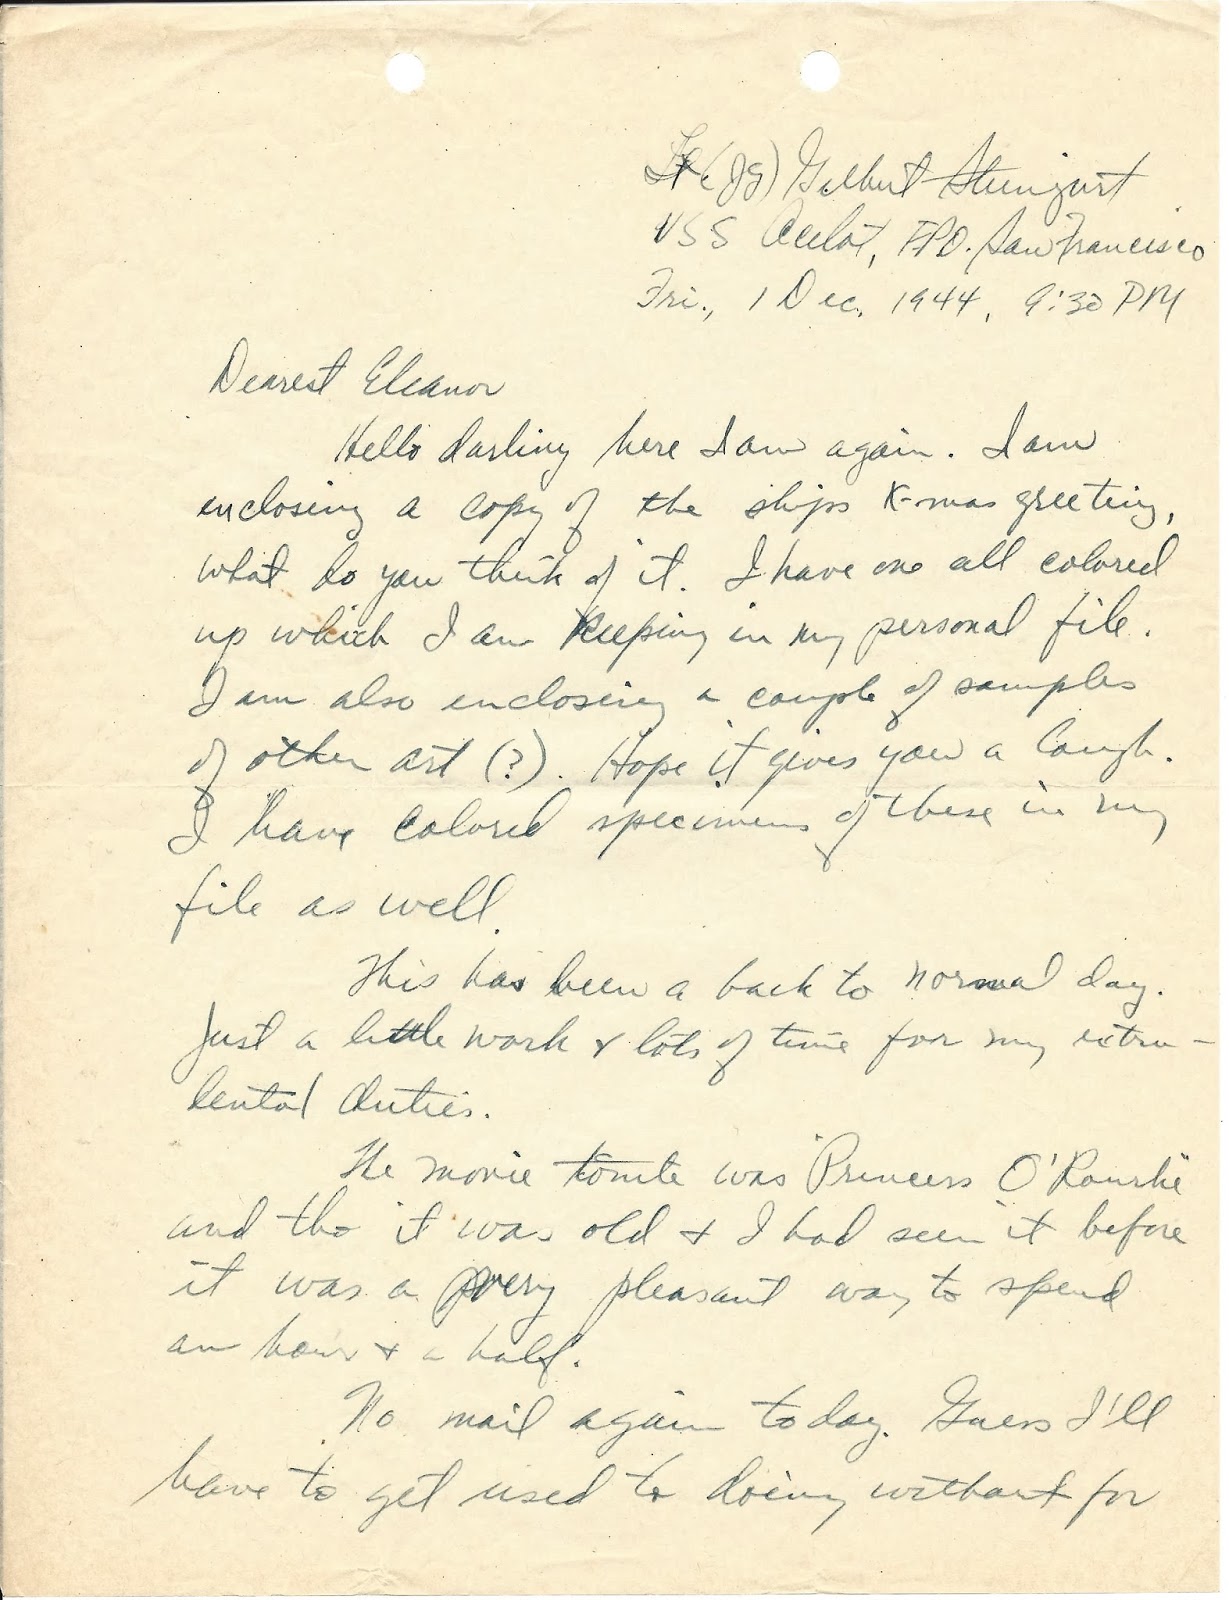 Lt (JG) Gilbert Steingart
USS Ocelot, FPO. San Francisco
Fri., 1 Dec. 1944, 9:30 PM
Dearest Eleanor
Hello darling here I am again. I am
enclosing a copy of the ships X-mas greeting,
what do you think of it. I have one all colored
up which I am keeping in my personal file.
I am also enclosing a couple of samples
of other art (?). Hope it gives you a laugh.
I have colored specimens of these in my
file as well.
This has been a back to normal day.
Just a little work & lots of time for my extra-
dental duties.
The movie tonite was Princess O'Rourke
and tho it was old & I had seen it before
it was a very pleasant way to spend
an hour & a half.
No mail again today. Guess I'll
have to get used to doing without for